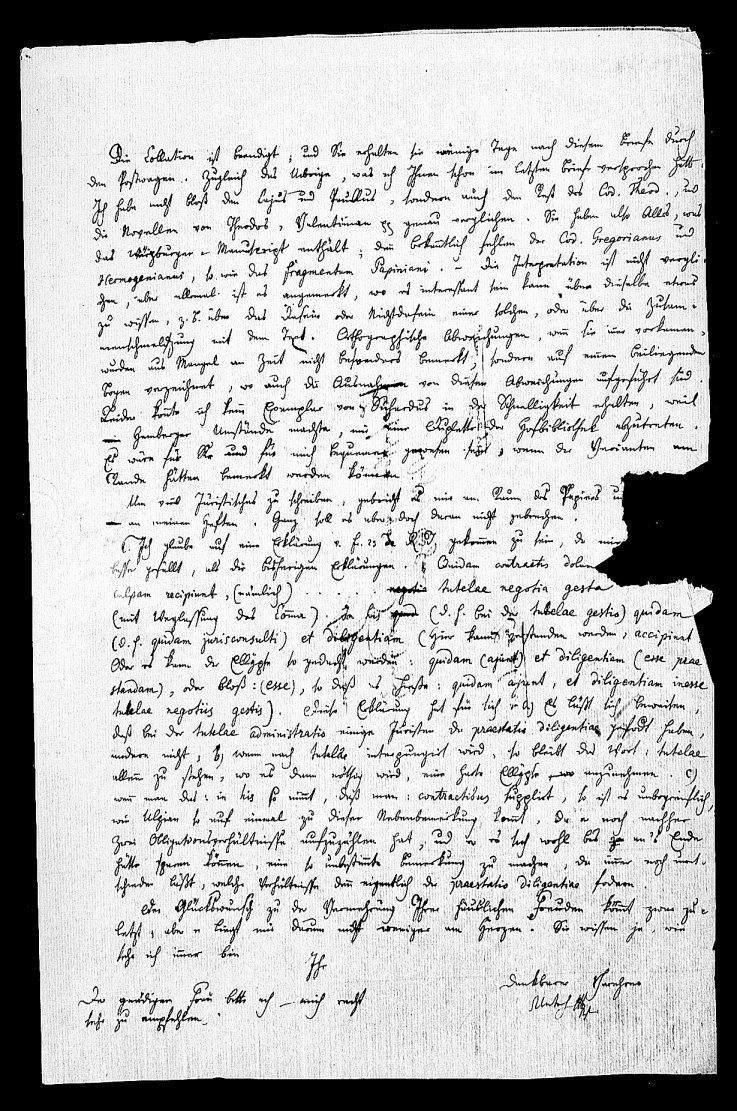 Die Collation ist beendigt, und Sie erhalten sie wenige Tage nach diesem Briefe durch
den Postwagen. Zugleich das Uebrige, was ich Ihnen schon im letzten Briefe versprochen hatte.
Ich habe nicht bloß den Cajus und Paullus, sondern auch den Rest des Cod. Theod., und
die Novellen von Theodos, Valentinian pp genau verglichen. Sie haben also Alles, was
das Würzburger Manuscript enthält; denn bekanntlich fehlen der Cod. Gregorianus und
Hermogenianus, so wie das fragmentum Papiniani. – Die Interpretation ist nicht vergli-
chen, aber allemal ist es angemerkt, wo es interessant sein kann über dieselbe etwas
zu wissen, z. B. über das Dasein oder Nichtdasein einer solchen, oder über die Zusam-
menschmelzung mit dem Text. Orthographische Abweichungen, wenn sie immer vorkommen,
wurden aus Mangel an Zeit nicht besonders bemerkt, sondern auf einem beiliegenden
Bogen verzeichnet, wo auch die Ausnahmen von diesen Abweichungen aufgeführt sind.
Leider konnte ich kein Exemplar von Sichardus in der Schnelligkeit erhalten, weil
Umstände machte, mir der Hofbibliothek abzutreten.
Es wäre für Sie und für mich bequemer gewesen, wenn die Varianten am
Rande hätten bemerkt werden können.
Um was Juristisches zu schreiben, gebricht es mir an Raum des Papiers
an meinen Heften. Ganz soll es aber doch daran nicht gebrechen.
Ich glaube auf eine Erklärung v. f. 23 gekommen zu sein, die mir
besser gefällt, als die bisherigen Erklärungen. Quidam contractis dolum
culpam recipiunt, (nämlich) . . . . . tutelae negotia gesta
(mit Weglassung des Comma). In his (d. h. bei der tutelae gestio) quidam
(d. h. quidam jurisconsulti) et diligentiam (hier kann verstanden werden: accipiunt
Oder es kann die Ellypse so gedacht werden: quidam (ajunt) et diligentiam (esse prae
standam), oder bloß: (esse), so daß es hieße: quidam ajunt, et diligentiam inesse
tutelae negotiis gestis). Diese Erklärung hat für sich a) Es läßt sich beweisen,
daß bei der tutelae administratio einige Juristen die praestatio diligentiae gefodert haben,
andere nicht, b) wenn nach tutelae interpungirt wird, so bleibt das Wort: tutelae
allein zu stehen, wo es dann nöthig wird, eine harte Ellypse anzunehmen. c)
wenn man das: in his so nimmt, daß man: contractibus supplirt, so ist es unbegreiflich,
wie Ulpian so auf einmal zu dieser Nebenbemerkung kommt, da er noch nachher
zwei Obligationsverhältnisse aufzuzählen hat, und er es sich wohl bis an's Ende
hätte sparen können, eine so unbestimmte Bemerkung zu machen, die immer noch unent-
schieden läßt, welche Verhältnisse denn eigentlich die praestatio diligentiae fodern.
Der Glückwunsch zu der Vermehrung Ihrer häuslichen Freuden kommt zwar zu-
letzt, aber er liegt mir darum nicht weniger am Herzen. Sie wissen ja, wie
sehr ich immer bin
Ihr
dankbarer Verehrer
Der gnädigen Frau bitte ich mich recht
sehr zu empfehlen.